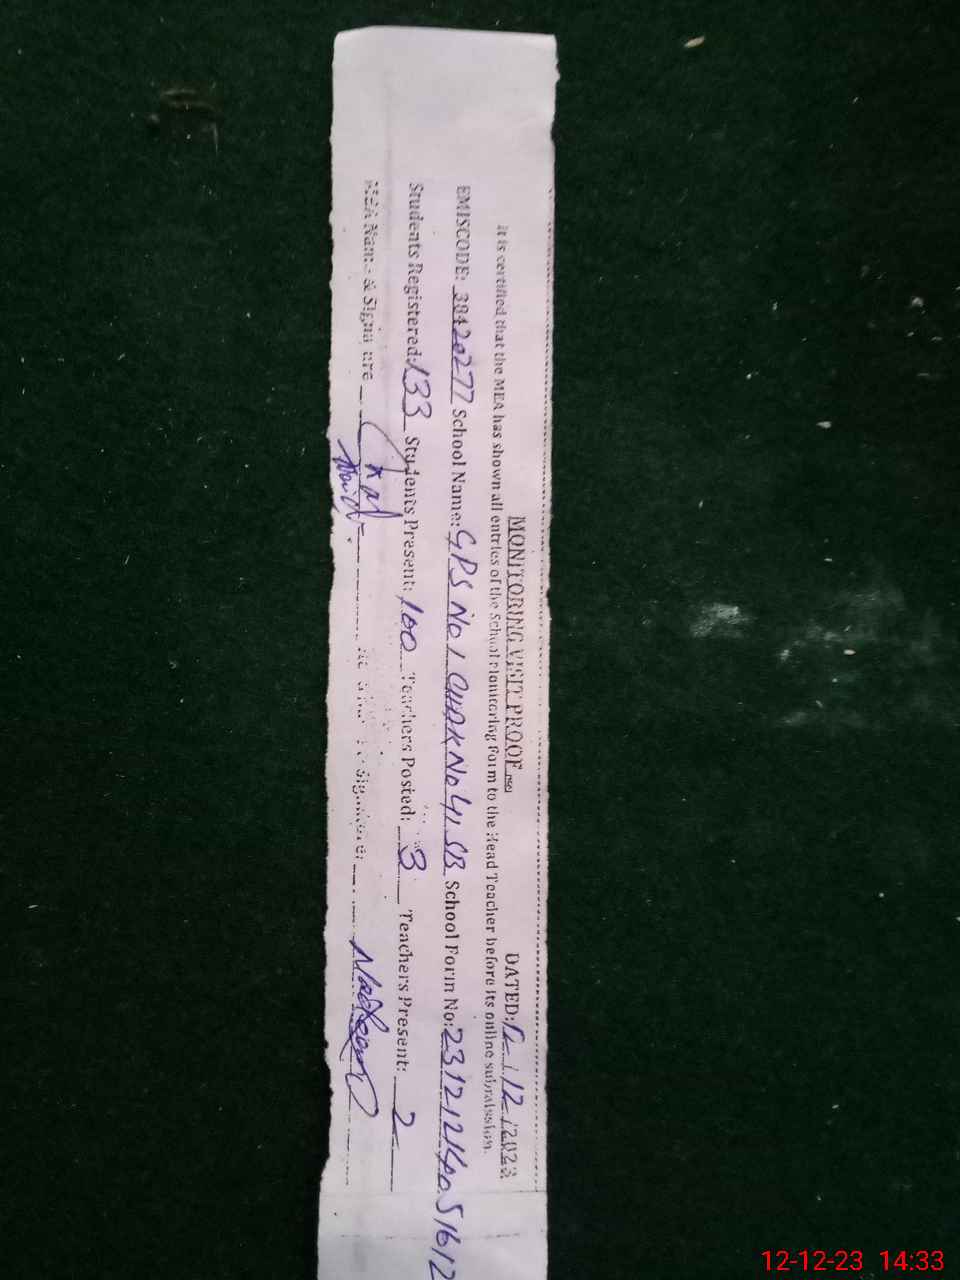 MONITORING VISIT PROOF DATED: 12/12/2023
It is certified that the MEA has shown all entries of the School Monitoring Form to the Head Teacher before its online submission.
EMISCODE: 38420277 School Name: GPS No 1 CHAK No 41 SB School Form No: 23121214051612
Students Registered: 133 Students Present: 100 Teachers Posted: 3 Teachers Present: 2
MEA Name & Signature Signature: Nadeem
12-12-23 14:33